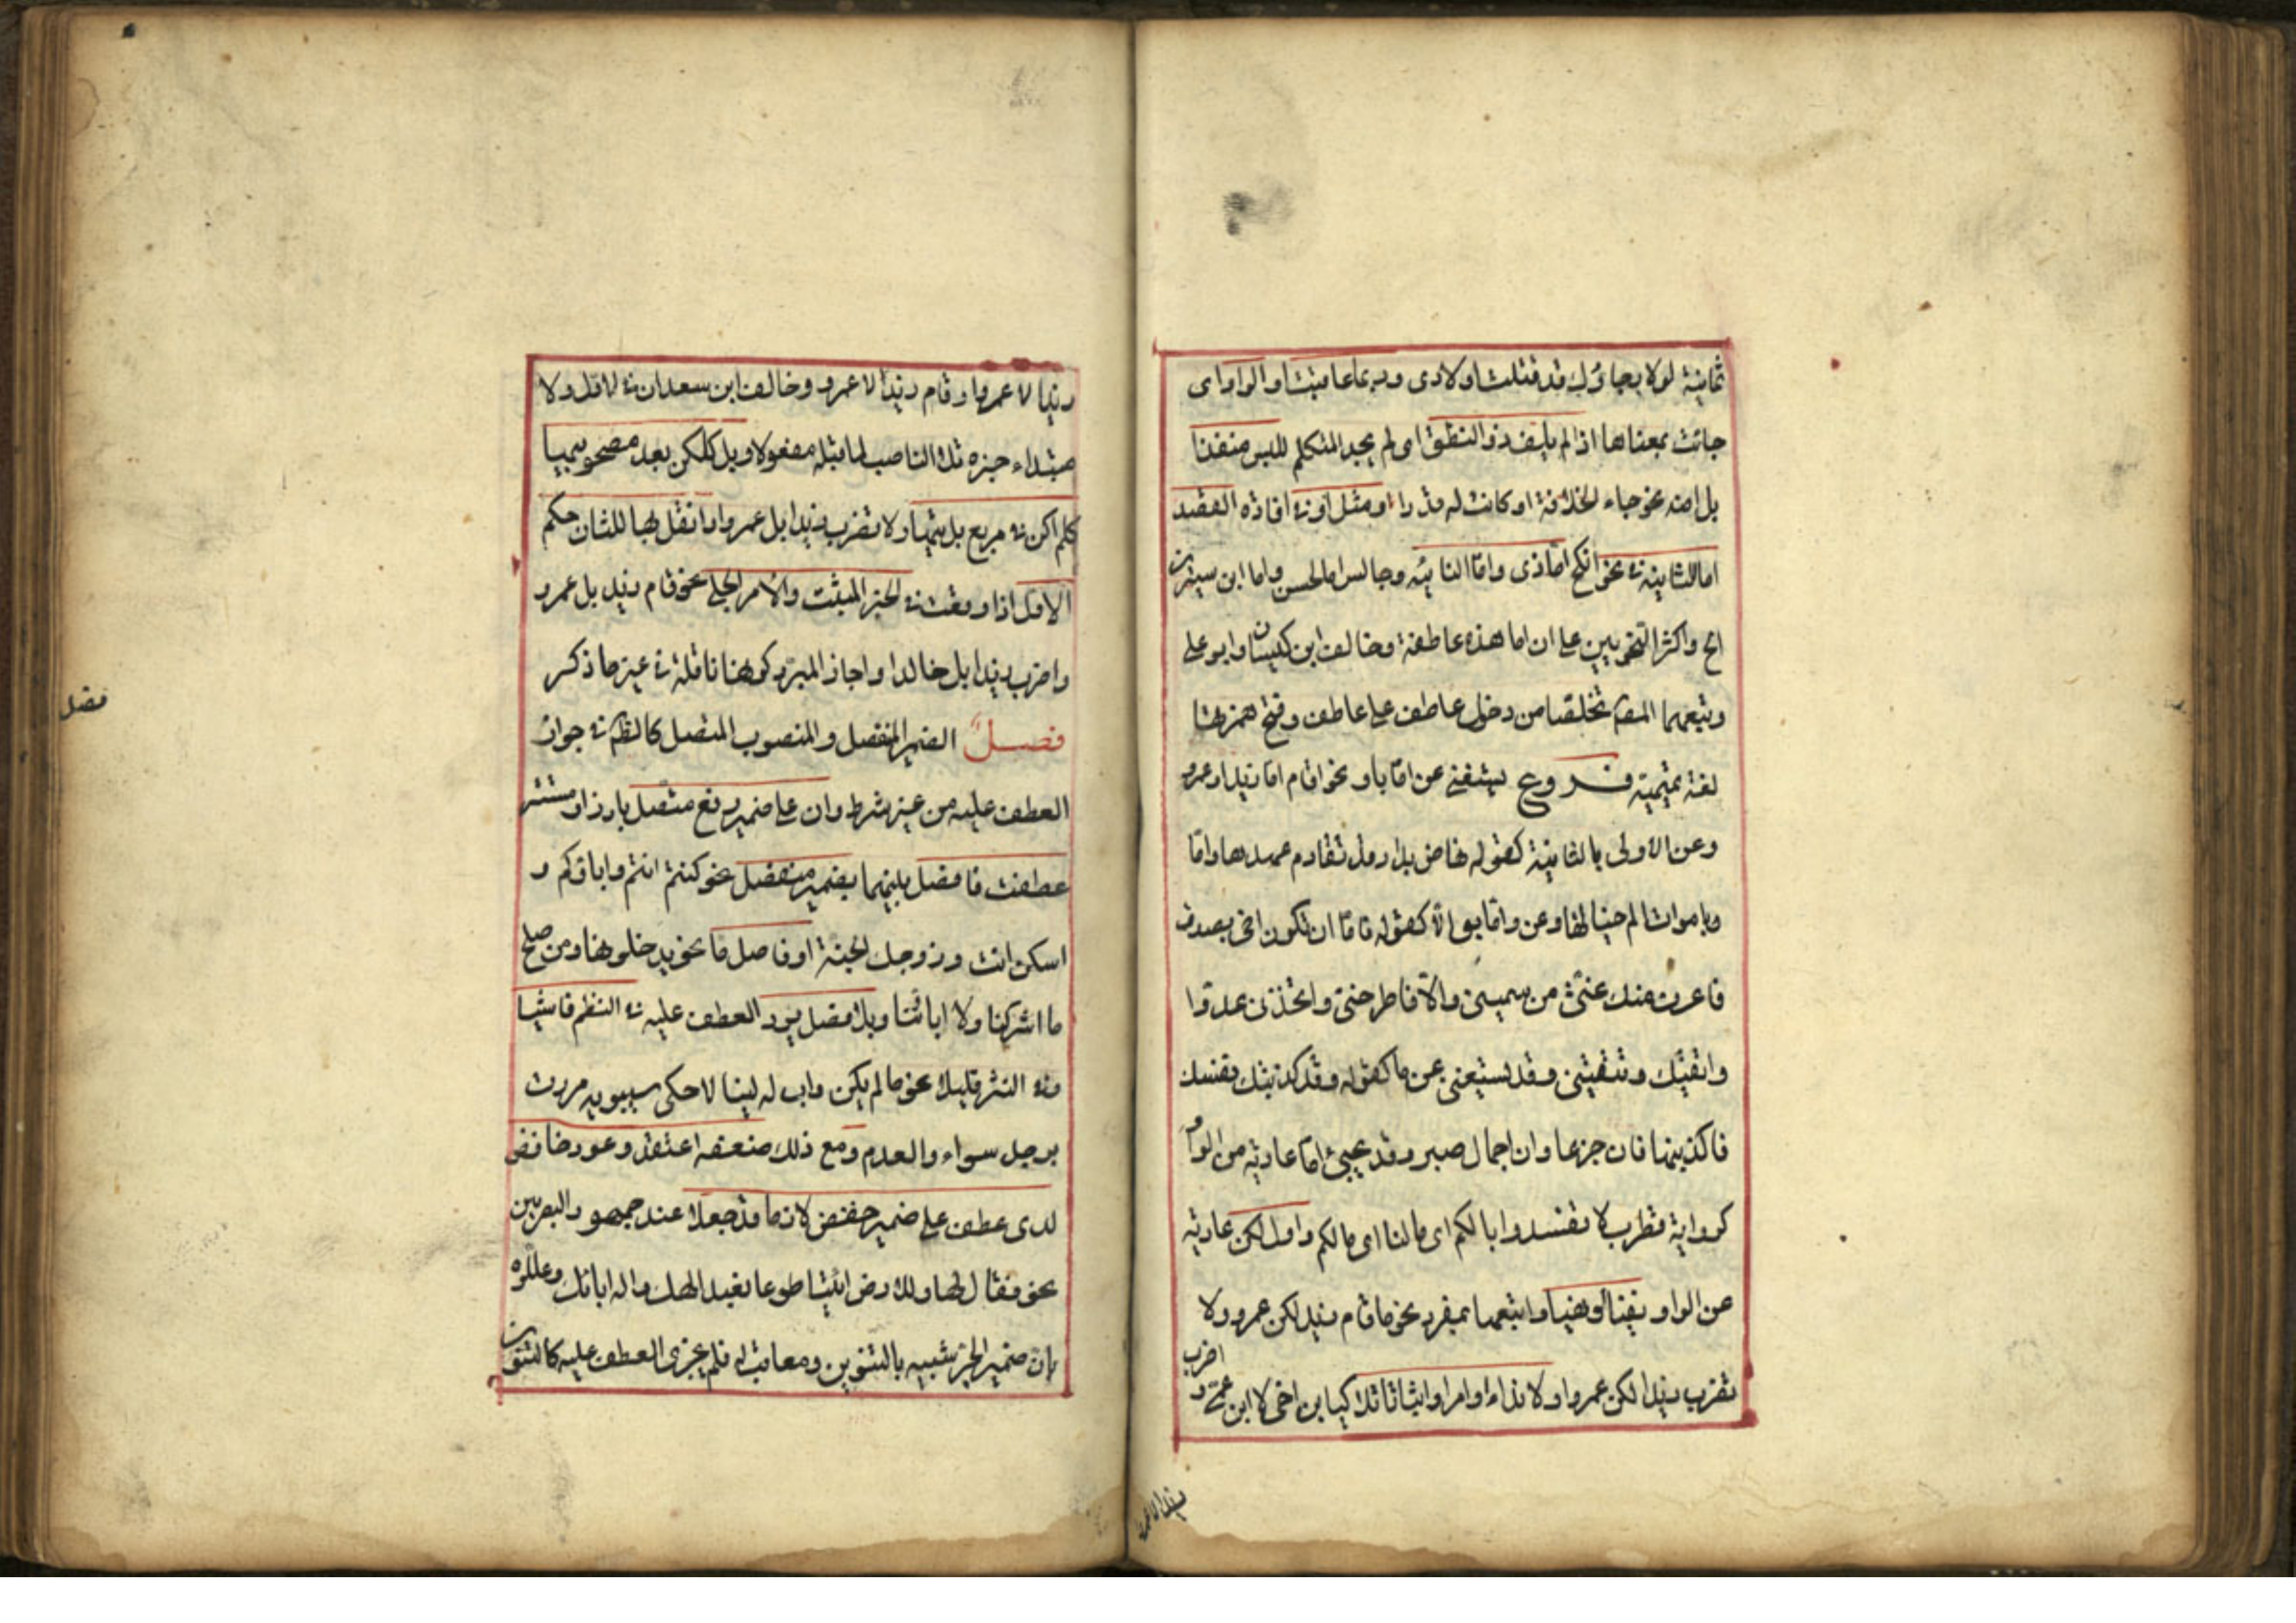 ثمانية لولا رجاؤك قد قتلت اولادى وربما عاقبت او الواو اى
جائت بمعناها اذا لم يلف ذو النطق اى لم يجد المتكلم للبس منفذا
بل امنه نحو جاء الخلافة او كانت له قدرا ومثل او فى افادة القصد
اما الثانية فى نحو انكح اما ذى واما النائية وجالس اما الحسن واما ابن سيرين
الخ واكثر النحويين على ان اما هذه عاطفة وخالف ابن كيسان وابو على
وتبعهما المصنف تخلصا من دخول عاطف على عاطف وفتح همزتها
لغة تميمية فروع يستغنى عن اما باو نحو قام اما زيد او عمرو
وعن الاولى بالثانية كقوله تهاض بدار قد تقادم عهدها واما
باموات الم خيالها وعن واما بوالا كقوله فاما ان تكون اخى بصدق
فاعرف منك غثى من سمينى والا فاطرحنى واتخذنى عدوا
واتقيك وتتقينى وقد يستغنى عن ما كقوله وقد كذبتك نفسك
فاكذبنها فان جزعا وان اجمال صبر وقد يجيئ اما عارية من الواو
كرواية قطرب لا تفسدوا ابالكم اى مالنا اى مالكم واول لكن عارية
عن الواو نفيا او نهيا واتبعها بمفرد نحو ما قام زيد لكن عمرو ولا
تضرب زيدا لكن عمروا ولا نداء او امرا او اثباتا تلا كيا ابن اخى لا ابن عمى و
اضرب
زيدا لا عمروا
زيدا لا عمروا وقام زيد لا عمرو وخالف ابن سعدان فى الاول ولا
مبتداء خبره تلا الناصب لما تبله مفعولا وبل كلكن بعد مصحوبيها
كلم اكن فى مربع بل تيها ولا تضرب زيدا بل عمروا وانقل بها للثان حكم
الاول اذا وقعت فى الخبر المثبت والامر الجلى نحو قام زيد بل عمرو
واضرب زيدا بل خالدا واجاز المبرد كونها ناقلة فى غير ما ذكر
فصل الضمير المنفصل والمنصوب المتصل كالظاهر فى جواز
العطف عليه من غير شرط وان على ضمير رفع متصل بارز او مستتر
عطفت فافصل بينهما بضمير منفصل نحو كنتم انتم واباؤكم و
اسكن انت وزوجك الجنة او فاصل ما نحو يدخلونها ومن صلح
ما اشركنا ولا اباؤنا وبلا فصل يرد العطف عليه فى النظم فاشيا
وفى النثر قليلا نحو ما لم يكن واب له لينالا حكى سيبويه مررت
برجل سواء والعدم ومع ذلك ضعفه اعتقد وعود خافض
لدى عطف على ضمير خفض لازما قد جعلا عند جمهور البصريين
نحو فقال لها وللارض ائتيا طوعا نعبد الهك واله ابائك وعللوه
بان ضمير الجر شبيه بالتنوين ومعاقب له فلم يجز العطف عليه كالتنوين
فصل